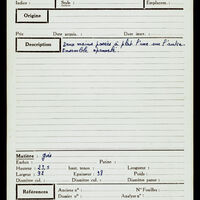 Indice : Style : Emplacem. :
Origine
Prix Date acquis. : Date inv. :
Description Deux mains posées à plat l'une sur l'autre.
Ensemble
Matière : grès
Endroit : Poinç. :
Hauteur : 23,5 haut. totale : Longueur :
Largeur : 32 Epaisseur : 38 Poids :
Diamètre col. : Diamètre col. : Diamètre panse :
Références Anciens nos : No Fouilles :
Dossier no : Analyse no :